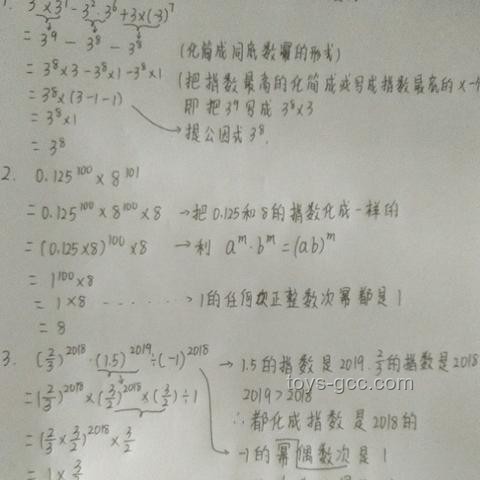 1. 3 × 3 - 3²·3⁶ + 3×(-3)⁷
= 3⁹ - 3⁸ - 3⁸ (化简成同底数幂的形式)
= 3⁸×3-3⁸×1-3⁸×1 (把指数最高的化简成或写成指数最高的×一个
= 3⁸×(3-1-1) 即把3⁹写成 3⁸×3
= 3⁸×1 →提公因式 3⁸.
= 3⁸
2. 0.125¹⁰⁰ × 8¹⁰¹
= 0.125¹⁰⁰ × 8¹⁰⁰ × 8 →把0.125和8的指数化成一样的
= (0.125×8)¹⁰⁰ ×8 →利 aᵐ·bᵐ=(ab)ᵐ
= 1¹⁰⁰×8
= 1×8 ······→ 1的任何次正整数次幂都是1
= 8
3. (2/3)²⁰¹⁸·(1.5)²⁰¹⁹÷(-1)²⁰¹⁸ → 1.5的指数是2019. 2/3的指数是2018
=(2/3)²⁰¹⁸×(3/2)²⁰¹⁸×(3/2)÷1 2019>2018
=(2/3×3/2)²⁰¹⁸×3/2 ∴都化成指数是2018的
= 1×3/2 →-1的幂偶数次是1
toys-gcc.com